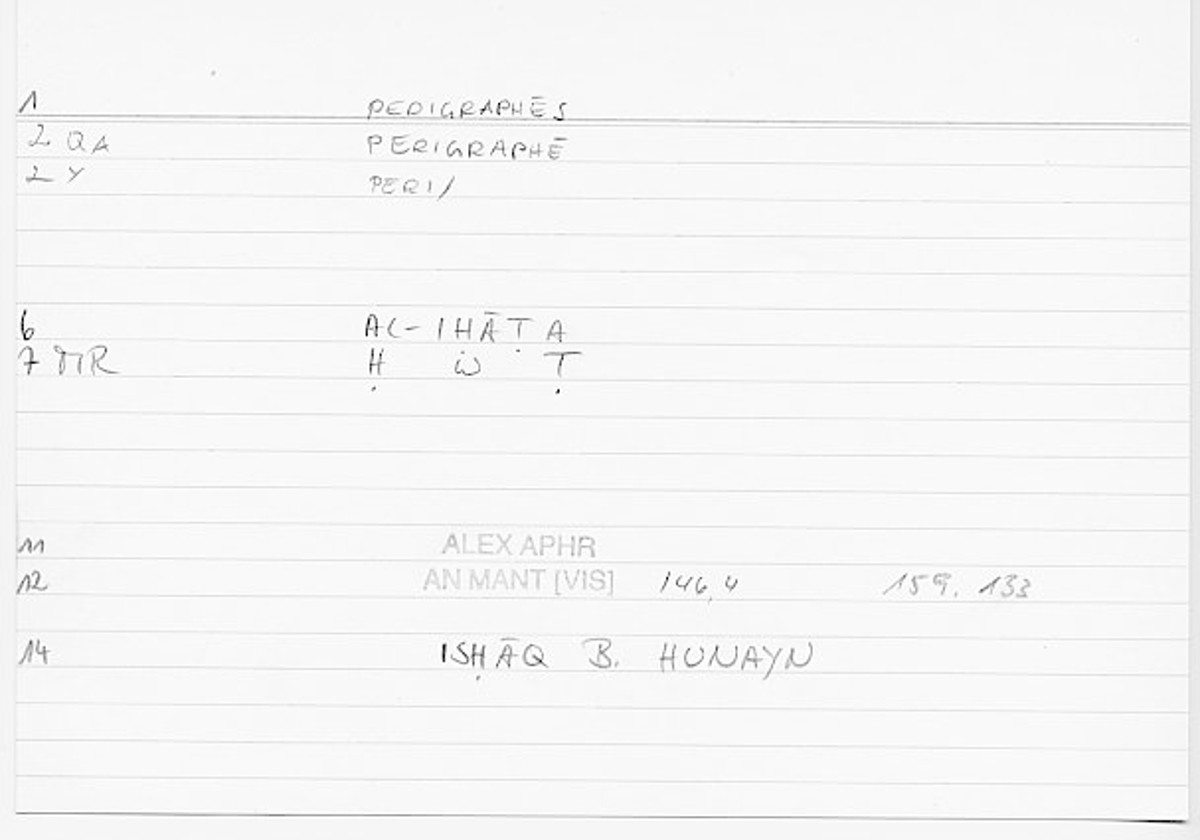 1 PERIGRAPHĒS
2 QA PERIGRAPHĒ
2 Y PERI/
6 AL-IHĀṬA
7 MR Ḥ W Ṭ
11 ALEX APHR
12 AN MANT [VIS] 146,4 159.133
14 ISḤĀQ B. HUNAYN